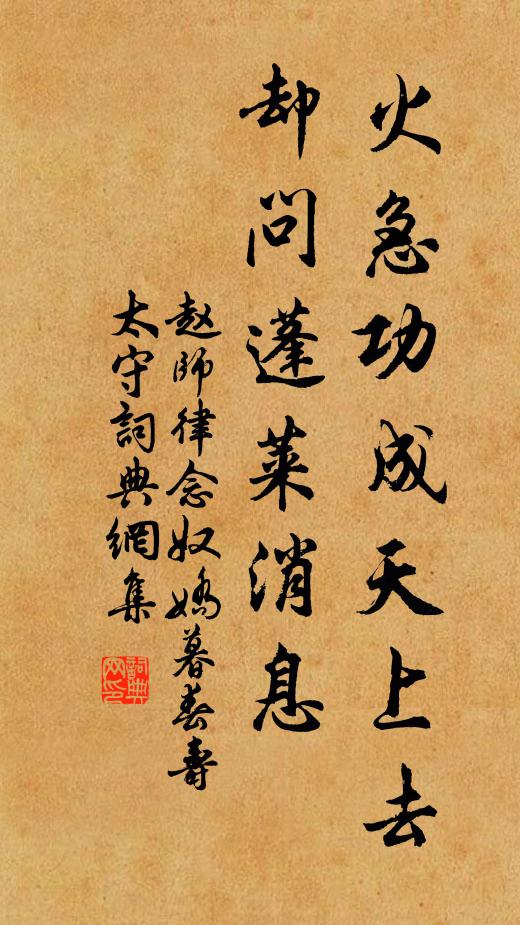 火急功成天上去
却问蓬莱消息
赵师律念奴娇暮春寿
太守詞典網集
詞典网印